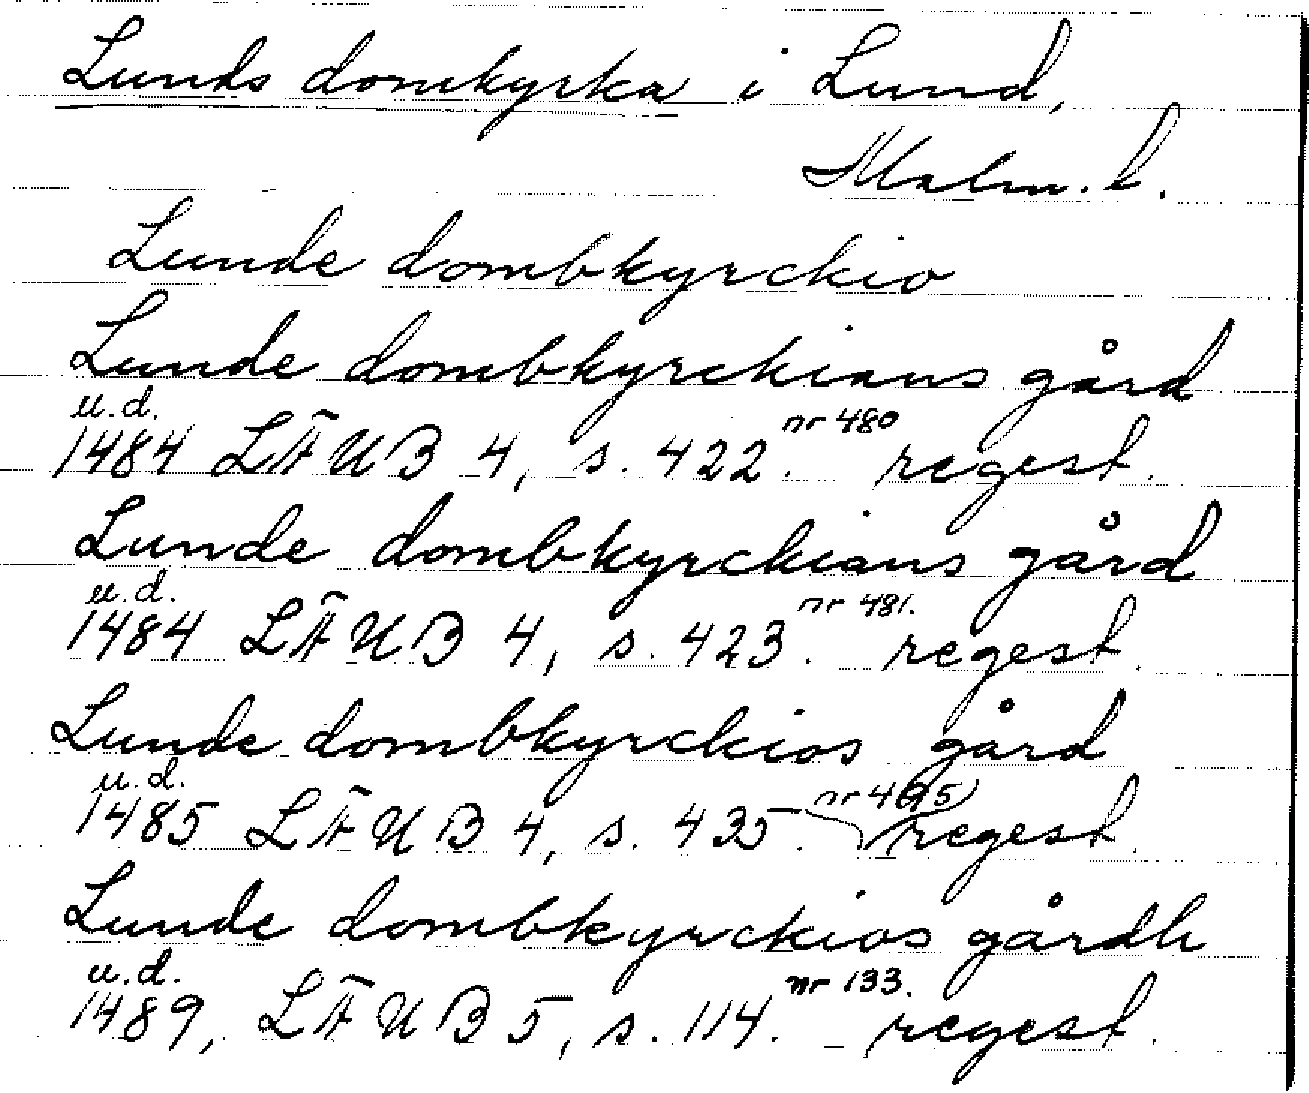 Lunds domkyrka i Lund,
Malm. l.
Lunde dombkyrckio
Lunde dombkyrckians gård
u.d.
1484 LÄUB 4, s. 422. nr 480 regest.
Lunde dombkyrckians gård
u.d.
1484 LÄUB 4, s. 423. nr 481. regest.
Lunde dombkyrckios gård
u.d.
1485 LÄUB 4, s. 435. nr 495 regest.
Lunde dombkyrckios gårdh
u.d.
1489, LÄUB 5, s. 114. nr 133. regest.